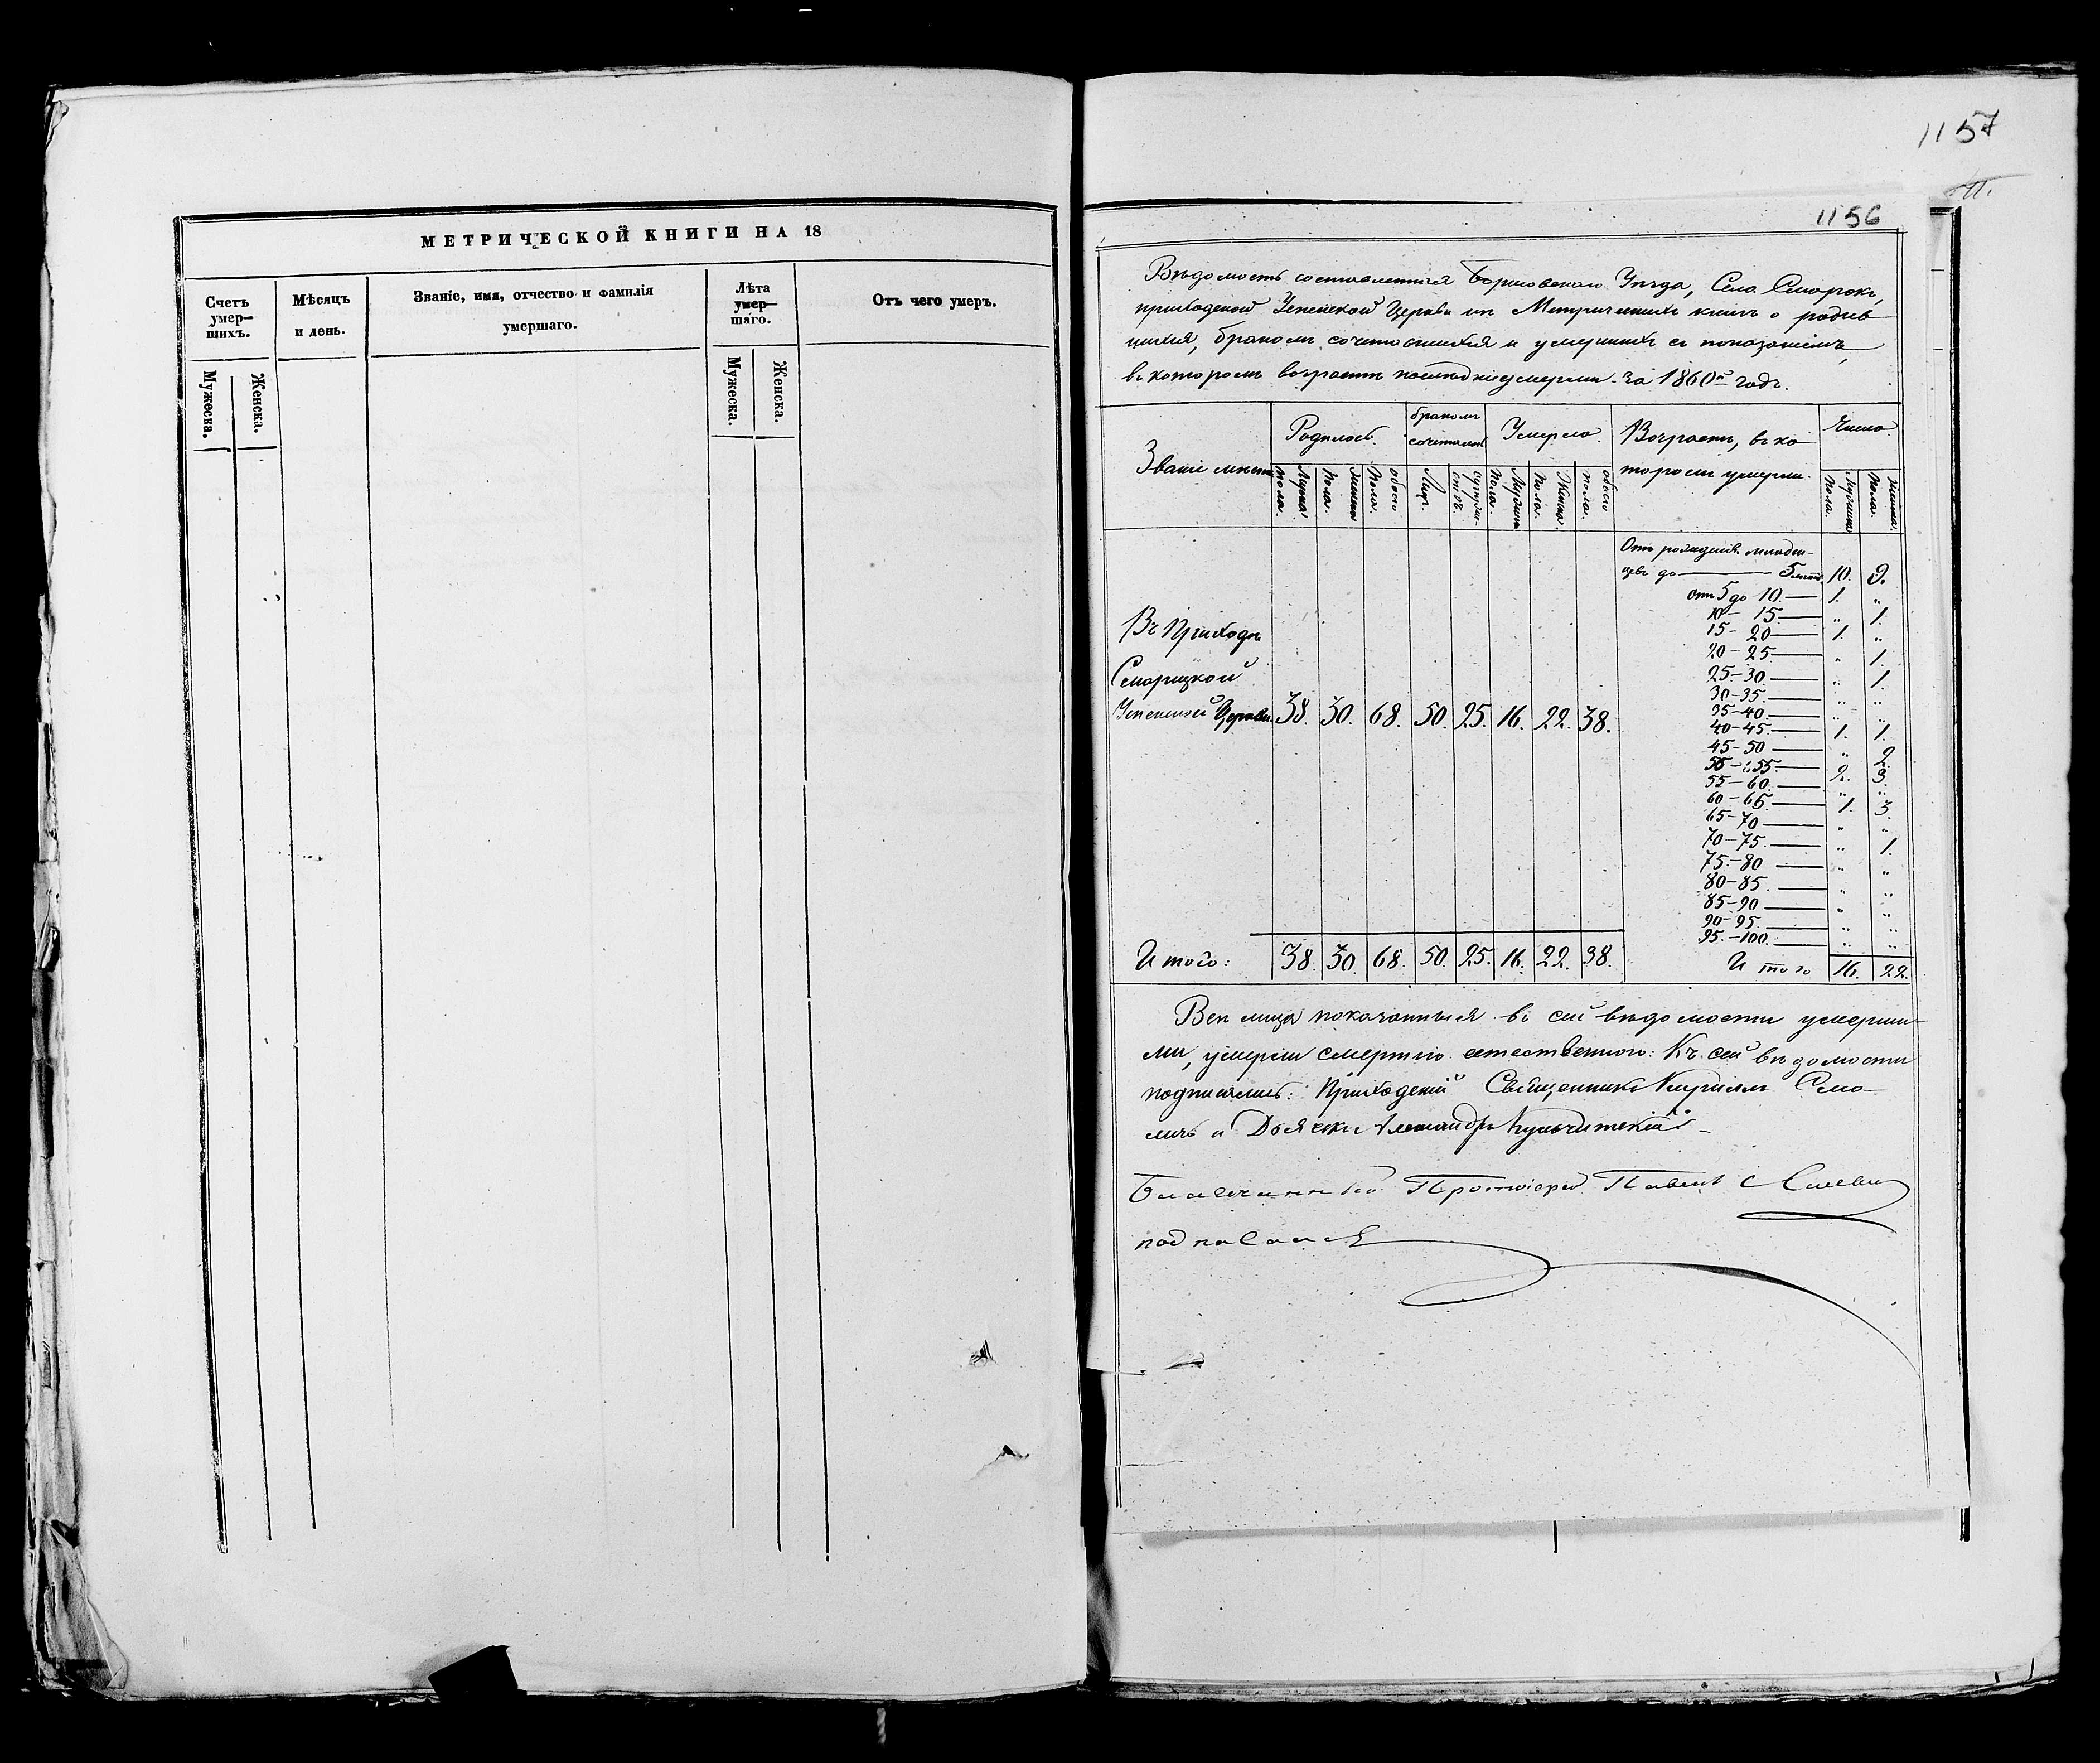 МЕТРИЧЕСКОЙ КНИГИ НА 18
Счетъ умер— шихъ.
Мужеска.
Женска.
Мѣсяцъ и день.
Званіе, имя, отчество и фамилія умершаго.
Лѣта умер— шаго.
Мужеска.
Женска.
Отъ чего умеръ.
1157
1156
Вѣдомость составленная Борисовскаго Уѣзда, Села Сморокъ,
приходской Успенской Церкви изъ Метрическихъ книгъ о родив
шихся, бракомъ сочетавшихся и умершихъ съ показаніемъ,
въ которомъ возрастѣ послѣдніе умерли за 1860й годъ.
Званіе мѣста
Родилось.
бракомъ
Умерло.
Возрастъ, въ ко
торомъ умерли.
Число.
Отъ рожденія младен-
цевъ до — 5 лѣтъ 10. 9.
отъ 5 до 10. — 1. „
10 — 15. — „ 1.
15 — 20 — 1. „
20 — 25. — „ 1.
25 — 30. — „ 1.
30 — 35. — „ „
35 — 40. — „ „
40 — 45. — 1. 1.
45 — 50 — „ 2.
50 — 55. — 2. 3.
55 — 60. — „ „
60 — 65. — 1. 3.
65 — 70 — „ „
70 — 75. — „ 1.
75. — 80 — „ „
80 — 85. — „ „
85 — 90 — „ „
90 — 95. — „ „
95. — 100. — „ „
Итого 16. 22.
Въ Приходѣ
Сморицкой
Успенской Церкви 38. 30. 68. 50. 25. 16. 22. 38.
Итого: 38. 30. 68. 50. 25. 16. 22. 38.
Всѣ лица показанныя въ сей вѣдомости умерши-
ми, умерли смертію естественною: Къ сей вѣдомости
подписались: Приходскій Священникъ Кириллъ Смо-
личъ и Дьячекъ Александръ
Благочинный Протоіерей Павелъ
подписался